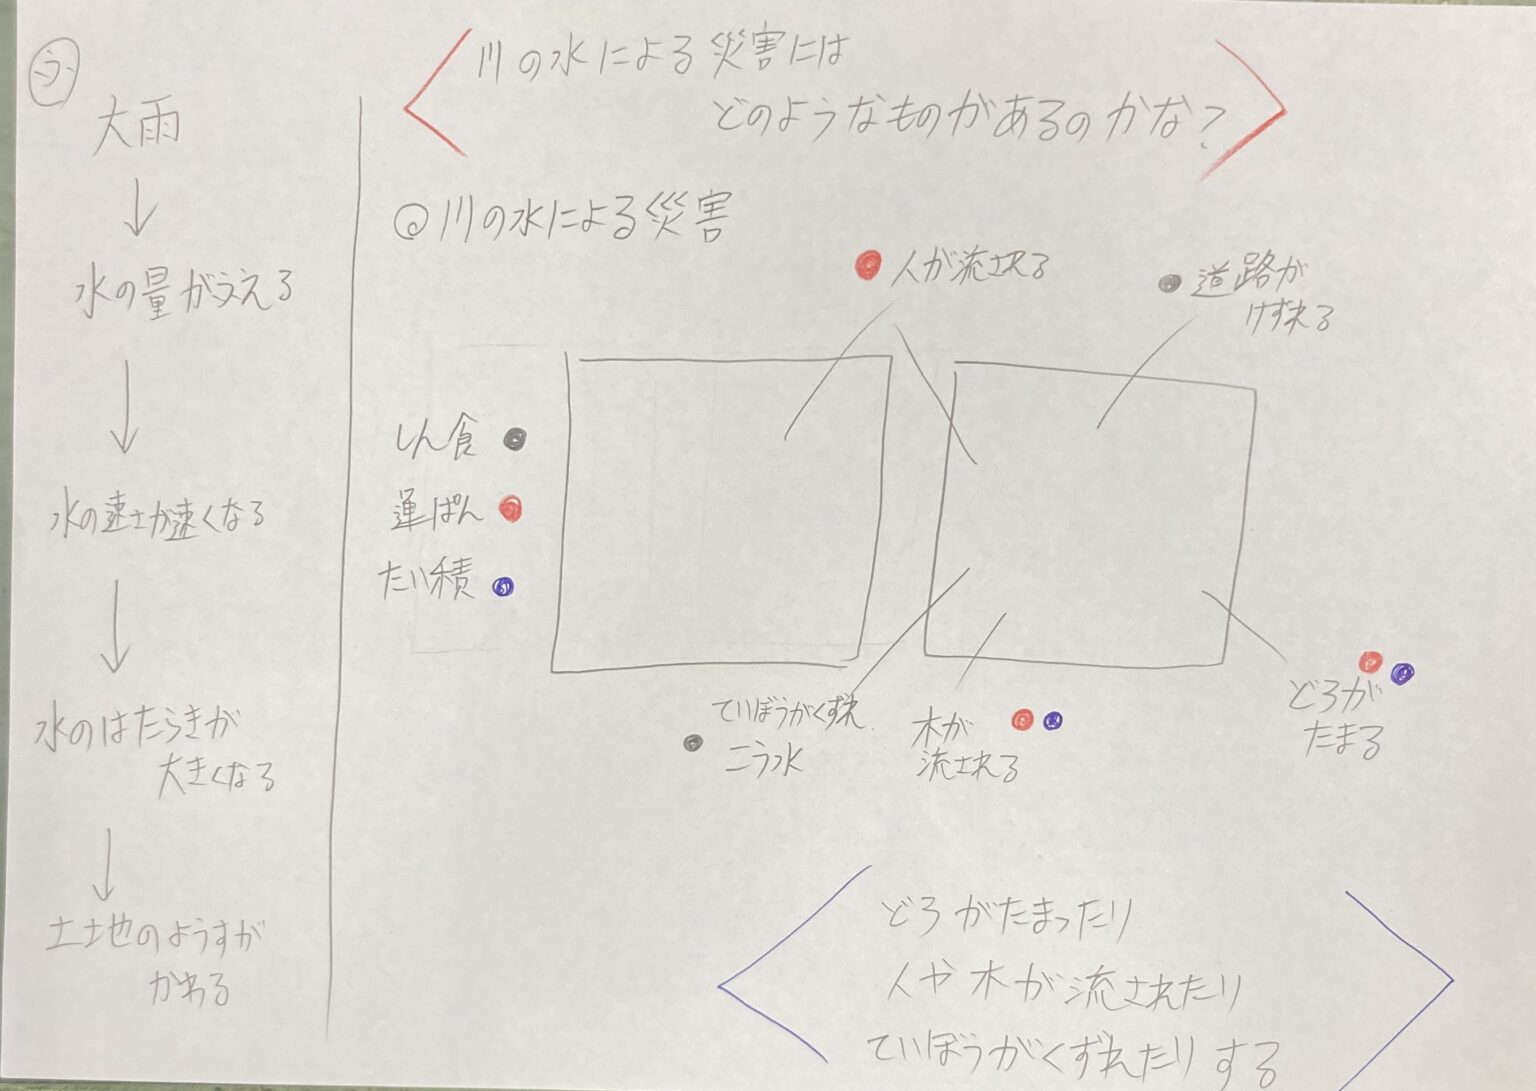 う
大雨
↓
水の量がふえる
↓
水の速さが速くなる
↓
水のはたらきが
大きくなる
↓
土地のようすが
かわる
川の水による災害には
どのようなものがあるのかな?
◎川の水による災害
人が流される
道路が
けずれる
しん食
運ぱん
たい積
ていぼうがくずれ
こう水
木が
流される
どろが
たまる
どろがたまったり
人や木が流されたり
ていぼうがくずれたりする